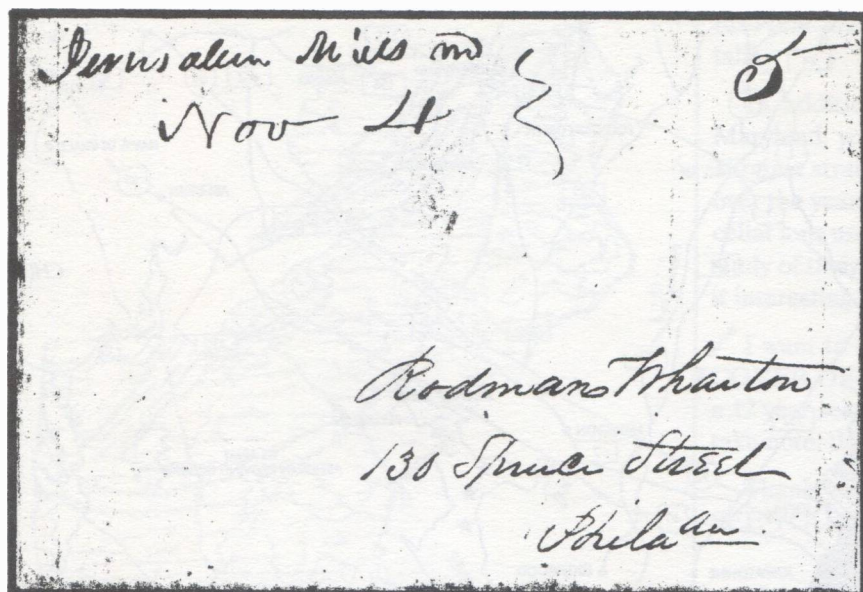 Jerusalem Mills md
Nov 4
5
Rodman Wharton
130 Spruce Street
Phila